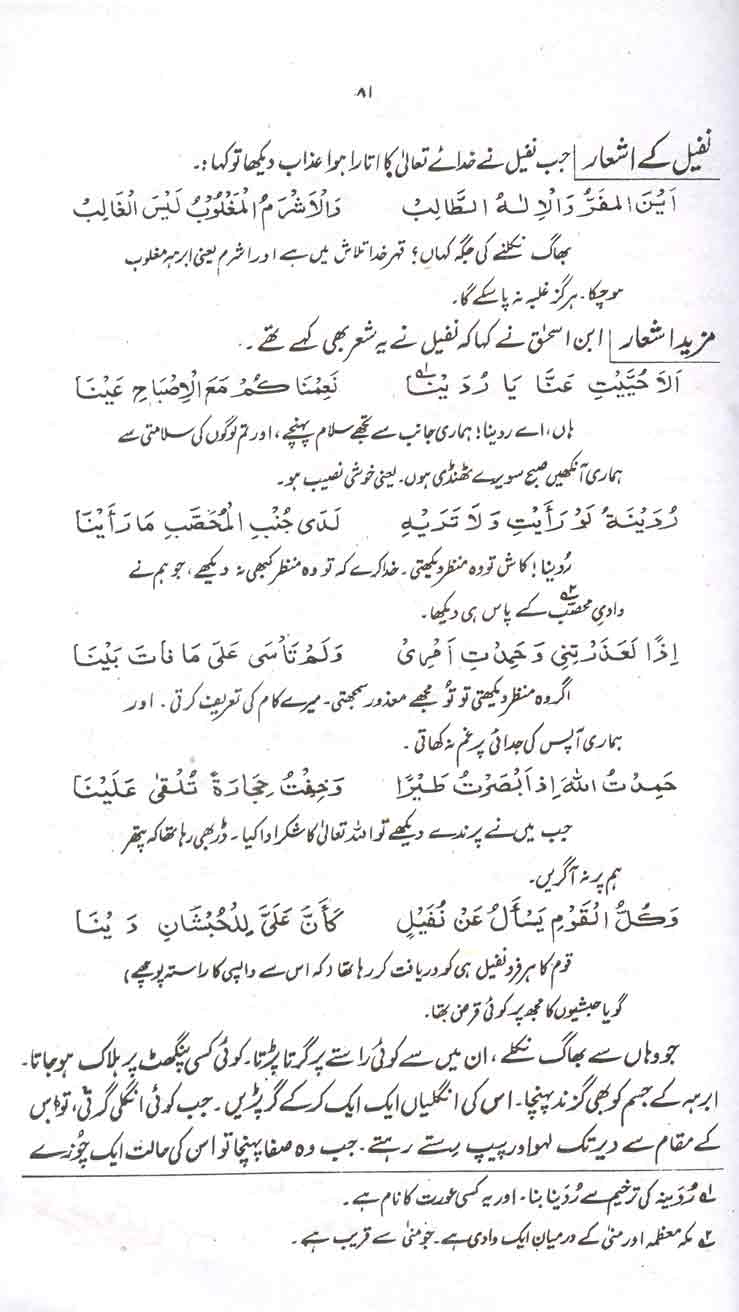 ۸۱
نفیل کے اشعار | جب نفیل نے خدائے تعالیٰ کا اتارا ہوا عذاب دیکھا تو کہا:۔
اَیْنَ الْمَفَرُّ وَالْاِلٰہُ الطَّالِبُ وَالْاَشْرَمُ الْمَغْلُوْبُ لَیْسَ الْغَالِبُ
بھاگ نکلنے کی جگہ کہاں؟ قہر خدا تلاش میں ہے اور اشرم یعنی ابرہہ مغلوب
ہوچکا۔ ہرگز غلبہ نہ پا سکے گا۔
مزید اشعار | ابن اسحٰق نے کہا کہ نفیل نے یہ شعر بھی کہے تھے۔
اَلَا حُیِّیْتِ عَنَّا یَا رُدَیْنَا ؂۱ نَعِمْنَا کُمْ مَعَ الْاِصْبَاحِ عَیْنَا
ہاں، اے ردینا! ہماری جانب سے تجھے سلام پہنچے، اور تم لوگوں کی سلامتی سے
ہماری آنکھیں صبح سویرے ٹھنڈی ہوں۔ یعنی خوشی نصیب ہو۔
رُدَیْنَۃُ لَوْ رَأَیْتِ وَلَا تَرَیْہِ لَدٰی جُنْبِ الْمُحَصَّبِ مَا رَأَیْنَا
رُدینا! کاش تو وہ منظر دیکھتی۔ خدا کرے کہ تو وہ منظر کبھی نہ دیکھے، جو ہم نے
وادیِ محصّب ؂۲ کے پاس ہی دیکھا۔
اِذًا لَعَذَرْتِنِیْ وَحَمِدْتِ اَمْرِیْ وَلَمْ تَأْسَیْ عَلٰی مَا فَاتَ بَیْنَا
اگر وہ منظر دیکھتی تو تُو مجھے معذور سمجھتی۔ میرے کام کی تعریف کرتی۔ اور
ہماری آپس کی جدائی پر غم نہ کھاتی۔
حَمِدْتُ اللّٰہَ اِذْ اَبْصَرْتُ طَیْرًا وَخِفْتُ حِجَارَۃً تُلْقٰی عَلَیْنَا
جب میں نے پرندے دیکھے تو اللہ تعالیٰ کا شکر ادا کیا۔ ڈر بھی رہا تھا کہ پتھر
ہم پر نہ آگریں۔
وَکُلُّ الْقَوْمِ یَسْأَلُ عَنْ نُفَیْلٍ کَأَنَّ عَلَیَّ لِلْحُبْشَانِ دَیْنَا
قوم کا ہر فرد نفیل ہی کو دریافت کر رہا تھا (کہ اس سے واپسی کا راستہ پوچھے)
گویا حبشیوں کا مجھ پر کوئی قرض تھا۔
جو وہاں سے بھاگ نکلے، ان میں سے کوئی راستے پر گرتا پڑتا۔ کوئی کسی پنگھٹ پر ہلاک ہو جاتا۔
ابرہہ کے جسم کو بھی گزند پہنچا۔ اس کی انگلیاں ایک ایک کر کے گر پڑیں۔ جب کوئی انگلی گرتی، تو اس
کے مقام سے دیر تک لہو اور پیپ رستے رہتے۔ جب وہ صفا پہنچا تو اس کی حالت ایک چُوزے
؂۱ رُدَینہ کی ترخیم سے رُدَینا بنا۔ اور یہ کسی عورت کا نام ہے۔
؂۲ مکہ معظمہ اور منیٰ کے درمیان ایک وادی ہے۔ جو منیٰ سے قریب ہے۔